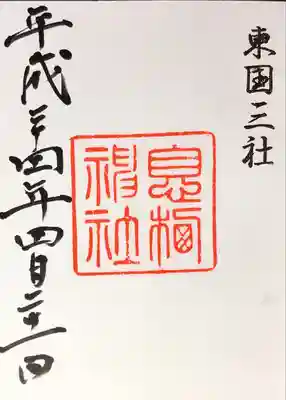 東国三社
息栖神社
平成二十四年四月二十一日